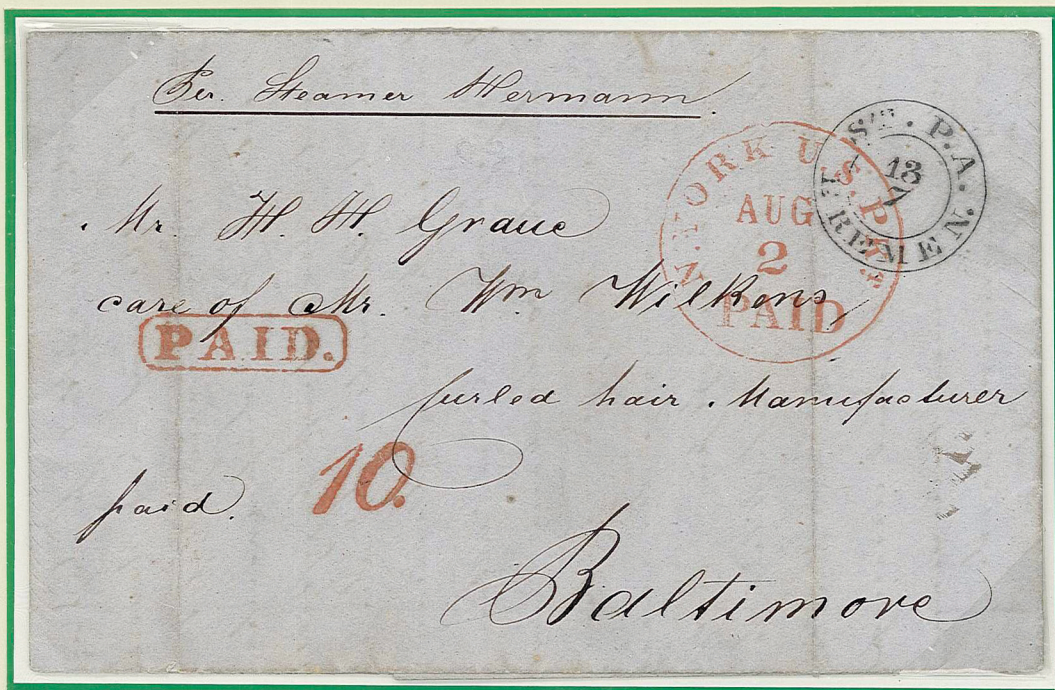 Per. Steamer Hermann.
ST. P.A. BREMEN.
13
7
N. YORK U.S. PKT
AUG
2
PAID
Mr. H. H. Graue
care of Mr. Wm Wilkens
PAID.
curled hair Manufacturer
paid. 10.
Baltimore